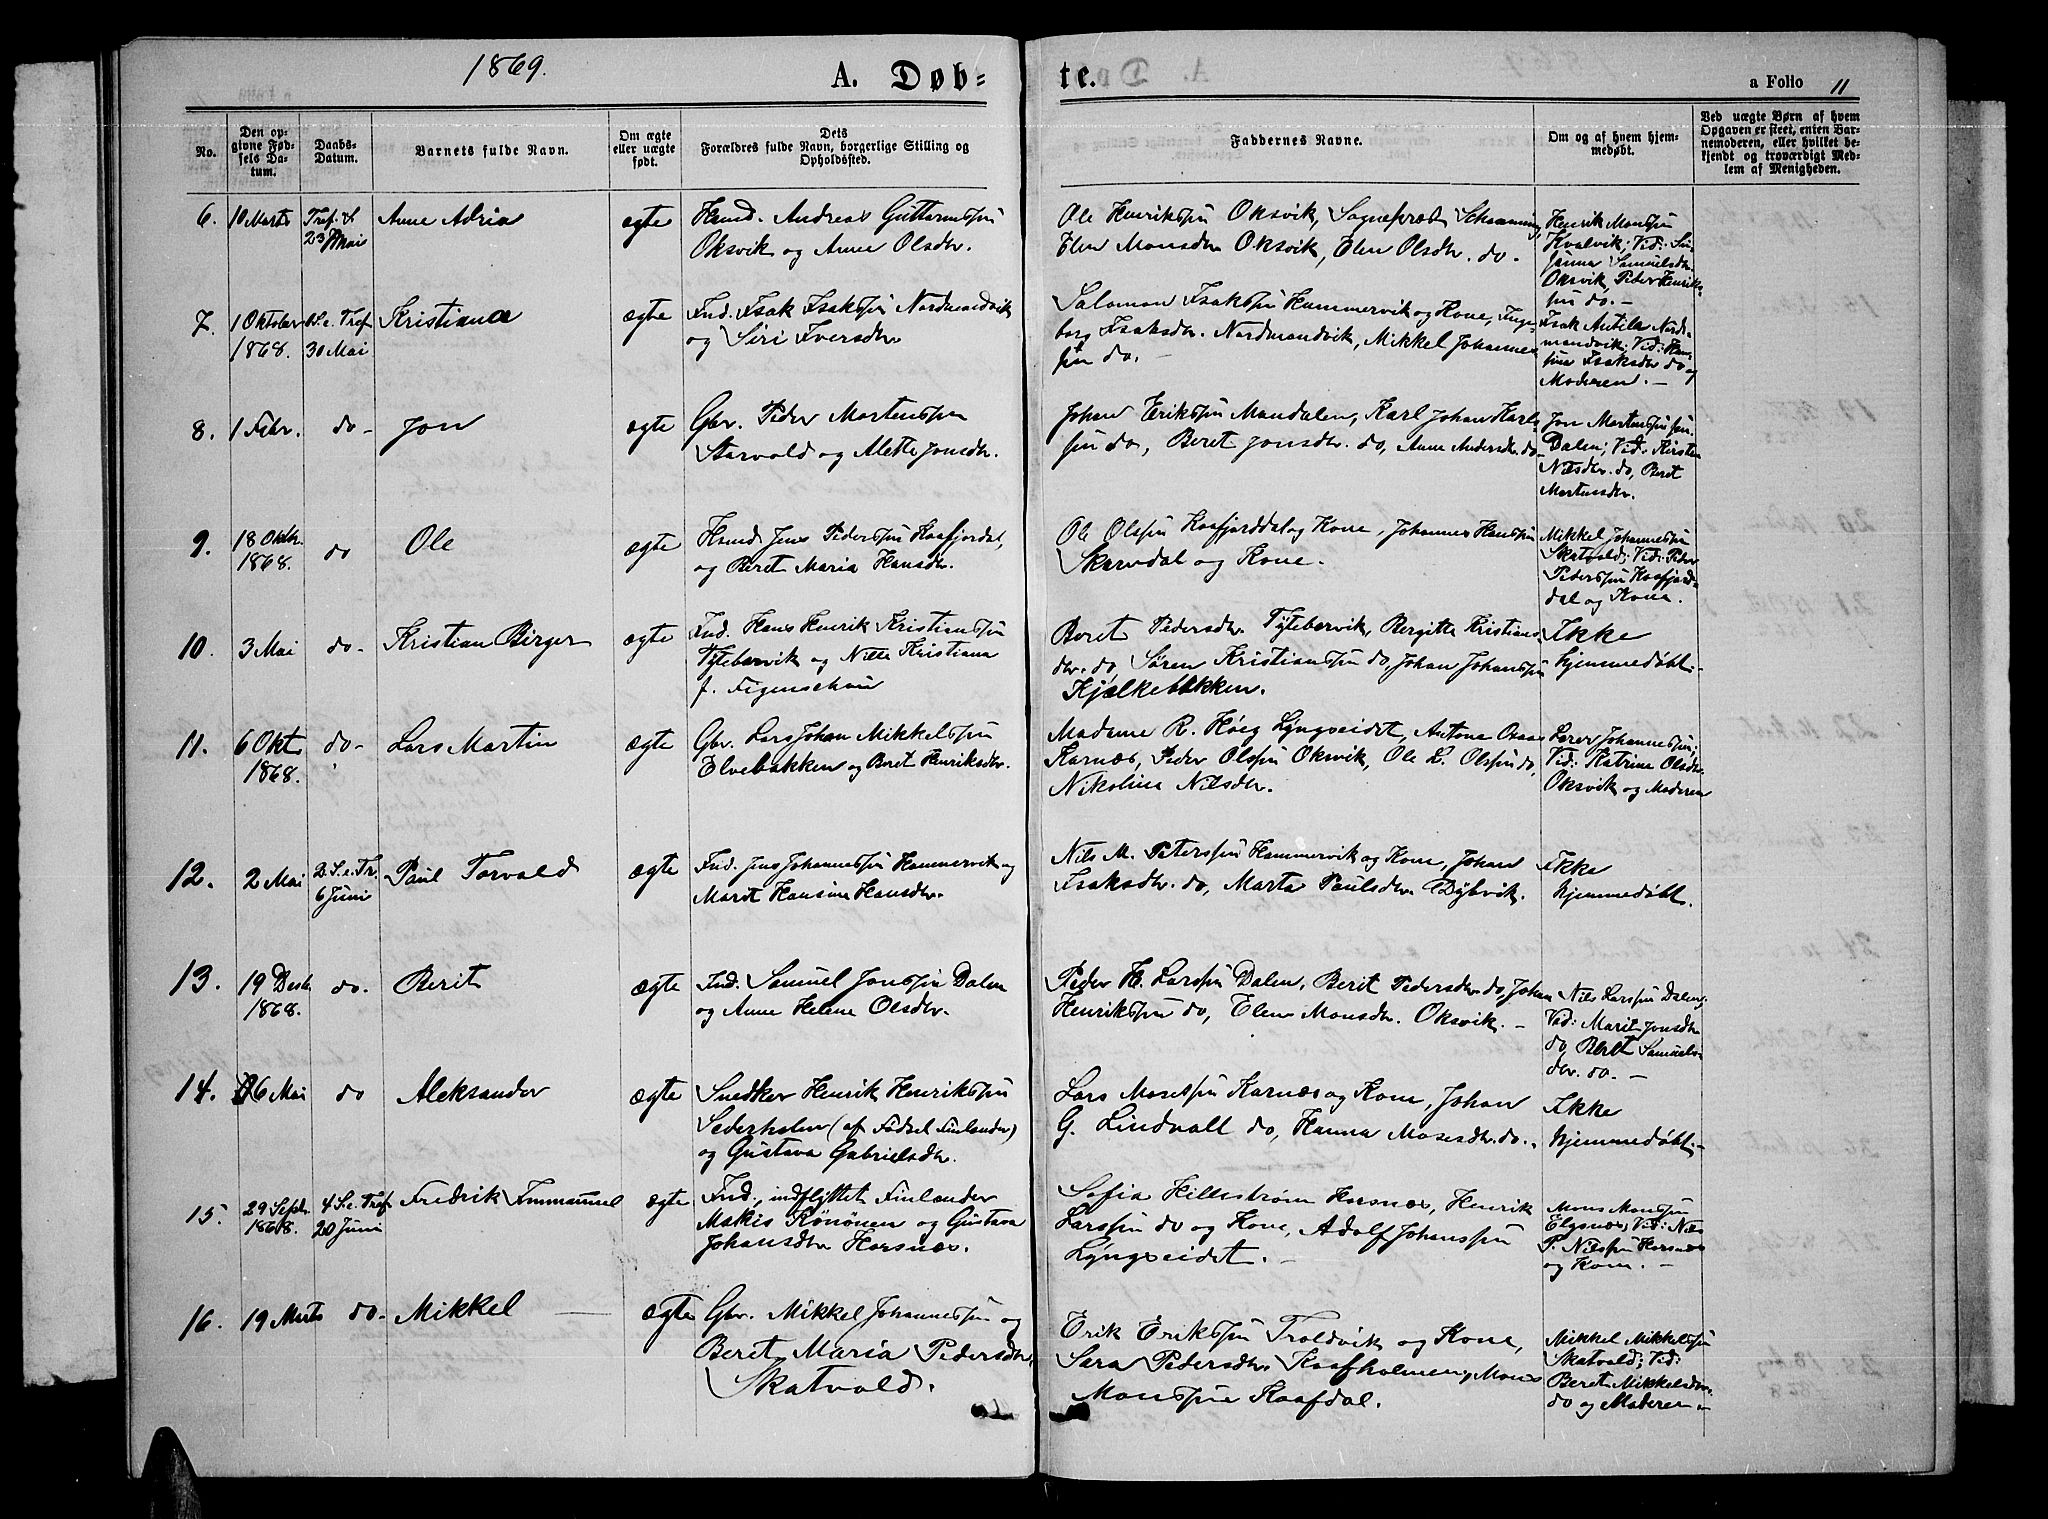 1869.
A. Døb=
te.
a Folio 11
No.
Den op=
givne Fød=
sels Da=
tum.
Daabs=
Datum.
Barnets fulde Navn.
Om ægte
eller uægte
født.
Dets
Forældres fulde Navn, borgerlige Stilling og
Opholdssted.
Faddernes Navne.
Om og af hvem hjem=
medøbt.
Ved uægte Børn af hvem
Opgaven er skeet, enten Bar=
nemoderen, eller hvilket be=
kjendt og troværdigt Med=
lem af Menigheden.
6.
10 Marts
Tref. S.
23 Mai
Anne Adria
ægte
Hsmd. Andreas Guttormssøn
Oksvik og Anne Olsdtr.
Ole Henrikssøn Oksvik, Sognepræst
Elen Monsdtr Oksvik, Elen Olsdtr. do.
Henrik Monssøn
Kvalvik; Vid: Su=
sanna Samuelsdtr
Oksvik, Peder Henriks=
søn do. -
7.
1 Oktober
1868.
1 S. e. Tref.
30 Mai
Kristiana
ægte
Ind. Isak Isakssøn Nordmandvik
og Siri Iversdtr
Salomon Isakssøn Hammervik og Kone, Inge=
borg Isaksdtr. Nordmandvik, Mikkel Johannes=
søn do. -
Isak Antila Nord=
mandvik; Vid: Han=
sine Isaksdtr do og
Moderen. -
8.
1 Febr.
do -
Jon
ægte
Gbr. Peder Mortenssøn
Storvold og Mette Jonsdtr.
Johan Erikssøn Mandalen, Karl Johan Karls=
søn do, Beret Jonsdtr. do, Anne Andersdtr. do -
Jon Mortenssøn
Dalen; Vid: Kirsten
Nilsdtr. do, Beret
Mortensdtr.
9.
18 Oktbr.
1868.
do
Ole
ægte
Hsmd Jens Pederssøn Kaafjordal,
og Beret Maria Hansdtr.
Ole Olssøn Kaafjorddal og Kone, Johannes Hanssøn
Skarvdal og Kone.
Mikkel Johannessøn
Skatvold; Vid: Peder
Pederssøn Kaafjord=
dal og Kone.
10.
3 Mai
do -
Kristian Birger
ægte
Ind. Hans Henrik Kristianssøn
Tytebærvik og Nille Kristiana
f. Figenschou
Beret Pedersdtr Tytebærvik, Bergitte Kristians
dtr. do, Søren Kristianssøn do, Johan Johanssøn
Kjælkebakken.
Ikke
hjemmedøbt. -
11.
6 Okt
1868.
do -
Lars Martin
ægte
Gbr. Lars Johan Mikkelssøn
Elvebakken og Beret Henriksdtr.
Madame R. Høeg Lyngseidet, Antone
Karnæs, Peder Olssøn Oksvik, Ole L. Olssøn do,
Nikoline Nilsdtr.
Lærer Johannessøn;
Vid: Katrine Olsdtr
Oksvik og Moderen
12.
2 Mai
2 S. e. Tr.
6 Juni
Paul Torvald
ægte
Ind. Jens Johannessøn Hammervik og
Marit Hansine Hansdtr.
Nils M. Peterssøn Hammervik og Kone, Johan
Isaksdtr. do, Marta Paulsdtr Dybvik.
Ikke
hjemmedøbt.
13.
19 Desbr
1868.
do.
Berit
ægte
Ind. Samuel Jonssøn Dalen
og Anne Helene Olsdtr.
Peder H. Larssøn Dalen, Berit Pedersdtr do, Johan
Henrikssøn do, Elen Monsdtr. Oksvik. -
Nils Larssøn Dalen;
Vid: Marit Jonsdtr
do, Beret Samuels=
dtr. do. -
14.
16 Mai
do
Aleksander
ægte
Snedker Henrik Henrikssøn
Sederholm (af Fødsel Finlænder)
og Gustava Gabrielsdtr.
Lars Mosessøn Karnæs og Kone, Johan
G. Lindvall do, Hanna Mosesdtr. do.
Ikke
hjemmedøbt. -
15.
29 Septr.
1868.
4 S. e. Tref.
20 Juni
Fredrik Immanuel
ægte
Ind., indflyttet Finlænder
Makis Rönönen og Gustava
Johansdtr Horsnæs.
Sofia Hillestrøm Horsnæs, Henrik
Larssøn do og Kone, Adolf Johanssøn
Lyngseidet. -
Mons Monssøn
Elgsnæs; Vid: Nils
P. Nilssøn Horsnæs
og Kone. -
16.
19 Marts
do -
Mikkel
ægte
Gbr. Mikkel Johannessøn og
Beret Maria Pedersdtr.
Skatvold.
Erik Erikssøn Troldvik og Kone,
Sara Pedersdtr. Kaafholmen, Mons
Monssøn Kaafdal.
Mikkel Mikkelssøn
Skatvold; Vid:
Beret Mikkelsdtr.
do og Moderen -